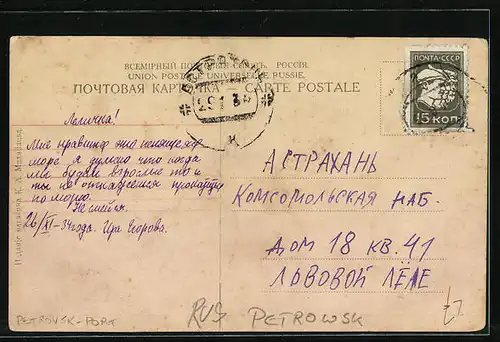 ВСЕМИРНЫЙ ПОЧТОВЫЙ СОЮЗ. РОССІЯ.
UNION POSTALE UNIVERSELLE RUSSIE.
ПОЧТОВАЯ КАРТОЧКА — CARTE POSTALE
ПОЧТА·СССР
15 КОП.
Лёличка!
Мне нравится это
море я думаю что когда
мы будем взрослые то и
ты не откажешься проехаться
по морю.
26/XI-34 года. Ира Егорова.
АСТРАХАНЬ
КОМСОМОЛЬСКАЯ НАБ.
ДОМ 18 КВ. 41
ЛЬВОВОЙ ЛЁЛЕ
PETROVSK-PORT
RUS
PETROWSK